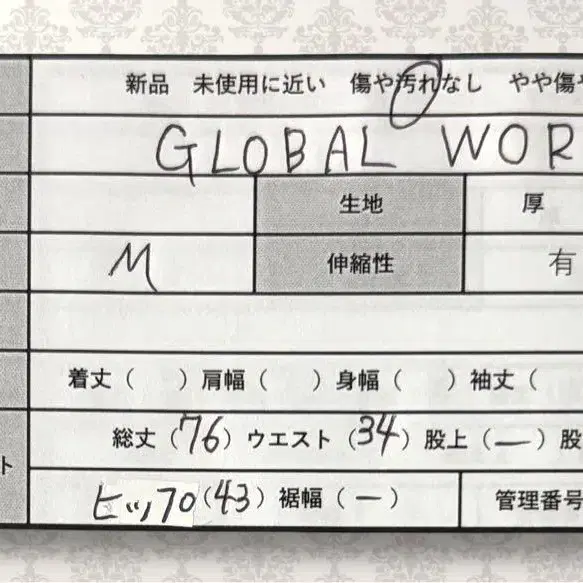 新品 未使用に近い 傷や汚れなし やや傷や
GLOBAL WOR
生地 厚
M 伸縮性 有
着丈( )肩幅( )身幅( )袖丈(
総丈(76)ウエスト(34)股上(ー)股
ト
ヒップ(43)裾幅(ー) 管理番号